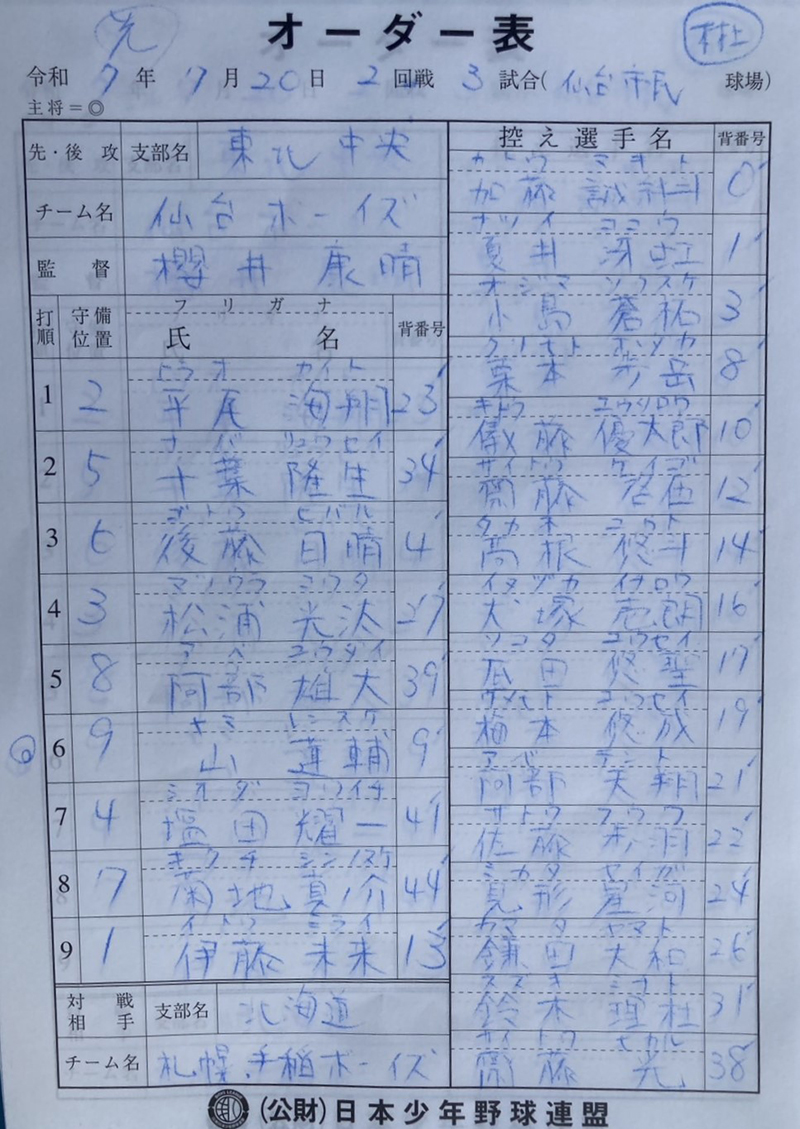 先
オーダー表
令和 7 年 7 月 20 日 2 回戦 3 試合( 仙台市民 球場)
主将=◎
先・後攻 支部名 東北中央
チーム名 仙台ボーイズ
監督 櫻井 康晴
打順 守備位置 フリガナ 氏名 背番号
ヒラオ カイト
1 2 平尾 海翔 23
ナバ リュウセイ
2 5 十葉 隆生 34
ゴトウ ヒバル
3 6 後藤 日晴 4
マツウラ
4 3 松浦 光汰 27
アベ ユウダイ
5 8 阿部 雄大 39
レンスケ
◎ 6 9 山 蓮輔 9
シオダ ヨウイチ
7 4 塩田 耀一 41
キクチ シンノスケ
8 7 菊地 真ノ介 44
イトウ ミライ
9 1 伊藤 未来 13
対戦相手 支部名 北海道
チーム名 札幌手稲ボーイズ
控え選手名 背番号
カトウ ミキト
加藤 0
ナツイ ココウ
夏井 冴虹 1
オジマ ソウスケ
小島 蒼祐 3
クリモト ホノカ
栗本 歩岳 8
キトウ ユウタロウ
儀藤 優太郎 10
サイトウ ケイゴ
齋藤 12
タカネ ユウト
高根 悠斗 14
イヌヅカ イチロウ
犬塚 壱朗 16
ソコタ ユウセイ
底田 悠聖 17
ウメモト ユウセイ
梅本 悠成 19
アベ テント
阿部 天翔 21
サトウ フウワ
佐藤 22
ミカタ セイガ
見形 星河 24
カマタ ヤマト
鎌田 大和 26
スズキ ミオト
鈴木 理杜 31
サイトウ ヒカル
齋藤 光 38
(公財)日本少年野球連盟